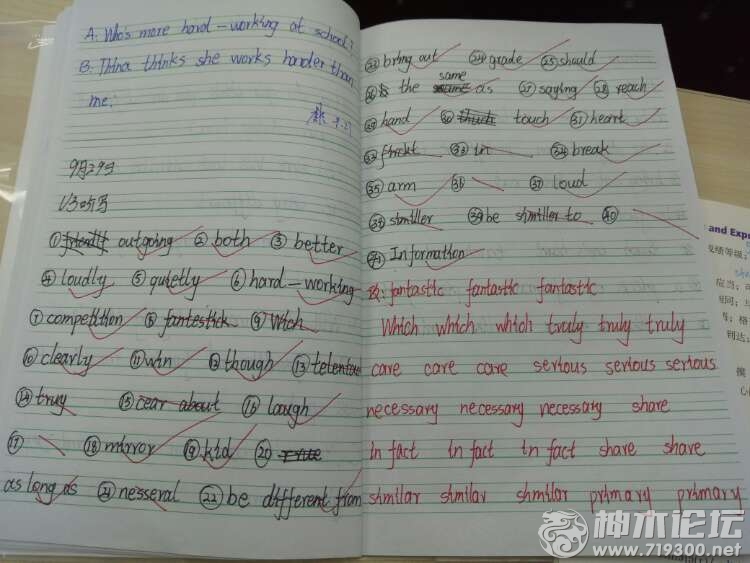 A. Who's more hard-working at school?
B. Tina thinks she works harder than
me.
9月29号
U3听写
① friendly outgoing ② both ③ better
④ loudly ⑤ quietly ⑥ hard-working
⑦ competition ⑧ fantestick ⑨ Wich
⑩ clearly ⑪ win ⑫ though ⑬ telented
⑭ truy ⑮ cear about ⑯ laugh
⑰ \ ⑱ mirror ⑲ kid ⑳
as long as ㉑ nesseral ㉒ be different from
㉓ bring out ㉔ grade ㉕ should
㉖ the same as ㉗ saying ㉘ reach
㉙ hand ㉚ touch ㉛ heart
㉝ in ㉞ break
㉟ arm ㊱ \ ㊲ loud
㊳ simller ㊴ be simller to ㊵ \
Information
改: fantastic fantastic fantastic
Which which which truly truly truly
care care care serious serious serious
necessary necessary necessary share
in fact in fact in fact share share
similar similar similar primary primary
and Expr
应当;
神木论坛
www.719300.net